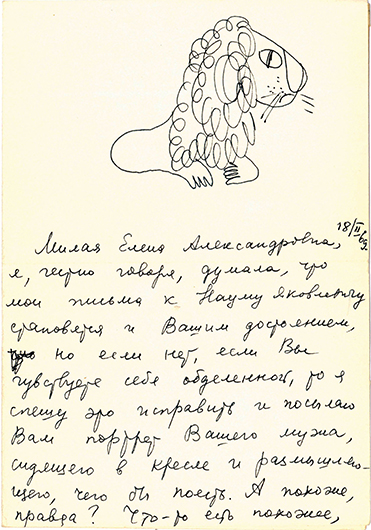 18/II 69.
Милая Елена Александровна,
я, честно говоря, думала, что
мои письма к Науму Яковлевичу
становятся и Вашим достоянием,
но если нет, если Вы
чувствуете себя обделенной, то я
спешу это исправить и посылаю
Вам портрет Вашего мужа,
сидящего в кресле и размышляю-
щего, чего бы поесть. А похоже,
правда? Что-то есть похожее,